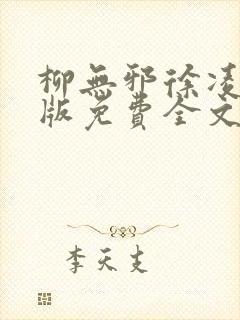 柳無邪徐凌
版免費全文
李天支